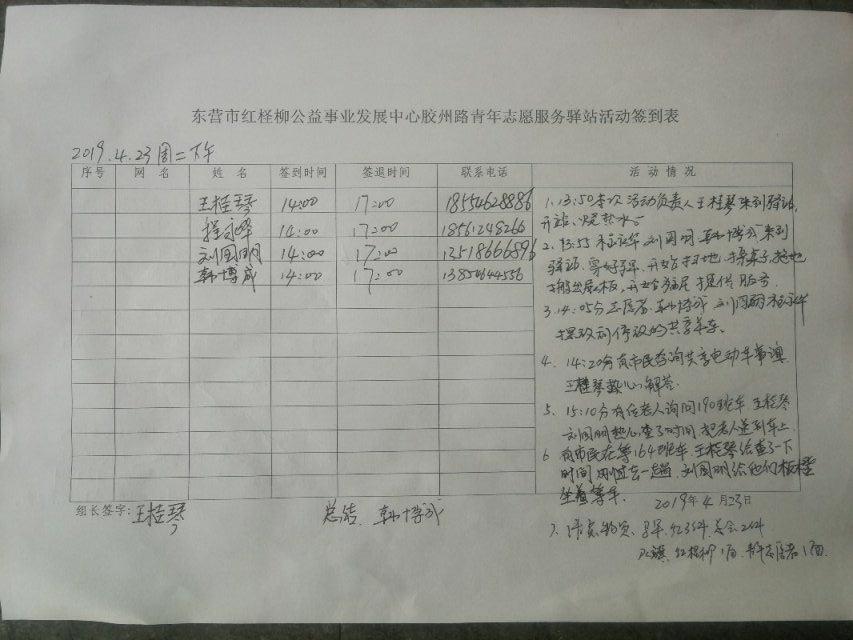 东营市红柽柳公益事业发展中心胶州路青年志愿服务驿站活动签到表
2019.4.23周二下午
序号 网名 姓名 签到时间 签退时间 联系电话 活动情况
王桂琴 14:00 17:00 18554628886
程永峰 14:00 17:00 18561248266
刘国明 14:00 17:00 13518666896
韩博成 14:00 17:00 13854644556
1、13:50本次活动负责人王桂琴来到驿站,
开站、烧热水。
2、13:55 刘国明 韩博成来到
驿站,穿好马甲,开始扫地,擦桌子,拖地
开始为居民提供服务
3、14:05分志愿者,韩博成 刘国明
摆放前停放的共享单车。
4、14:20分有市民咨询共享电动车
王桂琴热心解答.
5、15:10分有位老人询问190班车,王桂琴
刘国明热心查了时间,把老人送到车上
6 有市民在等164班车,王桂琴给查了一下
时间,刚过去一趟,刘国明给他们板凳
坐着等车.
2019年4月23日
组长签字:王桂琴 总结、韩博成
7、
红柽柳1面、青年志愿者1面.